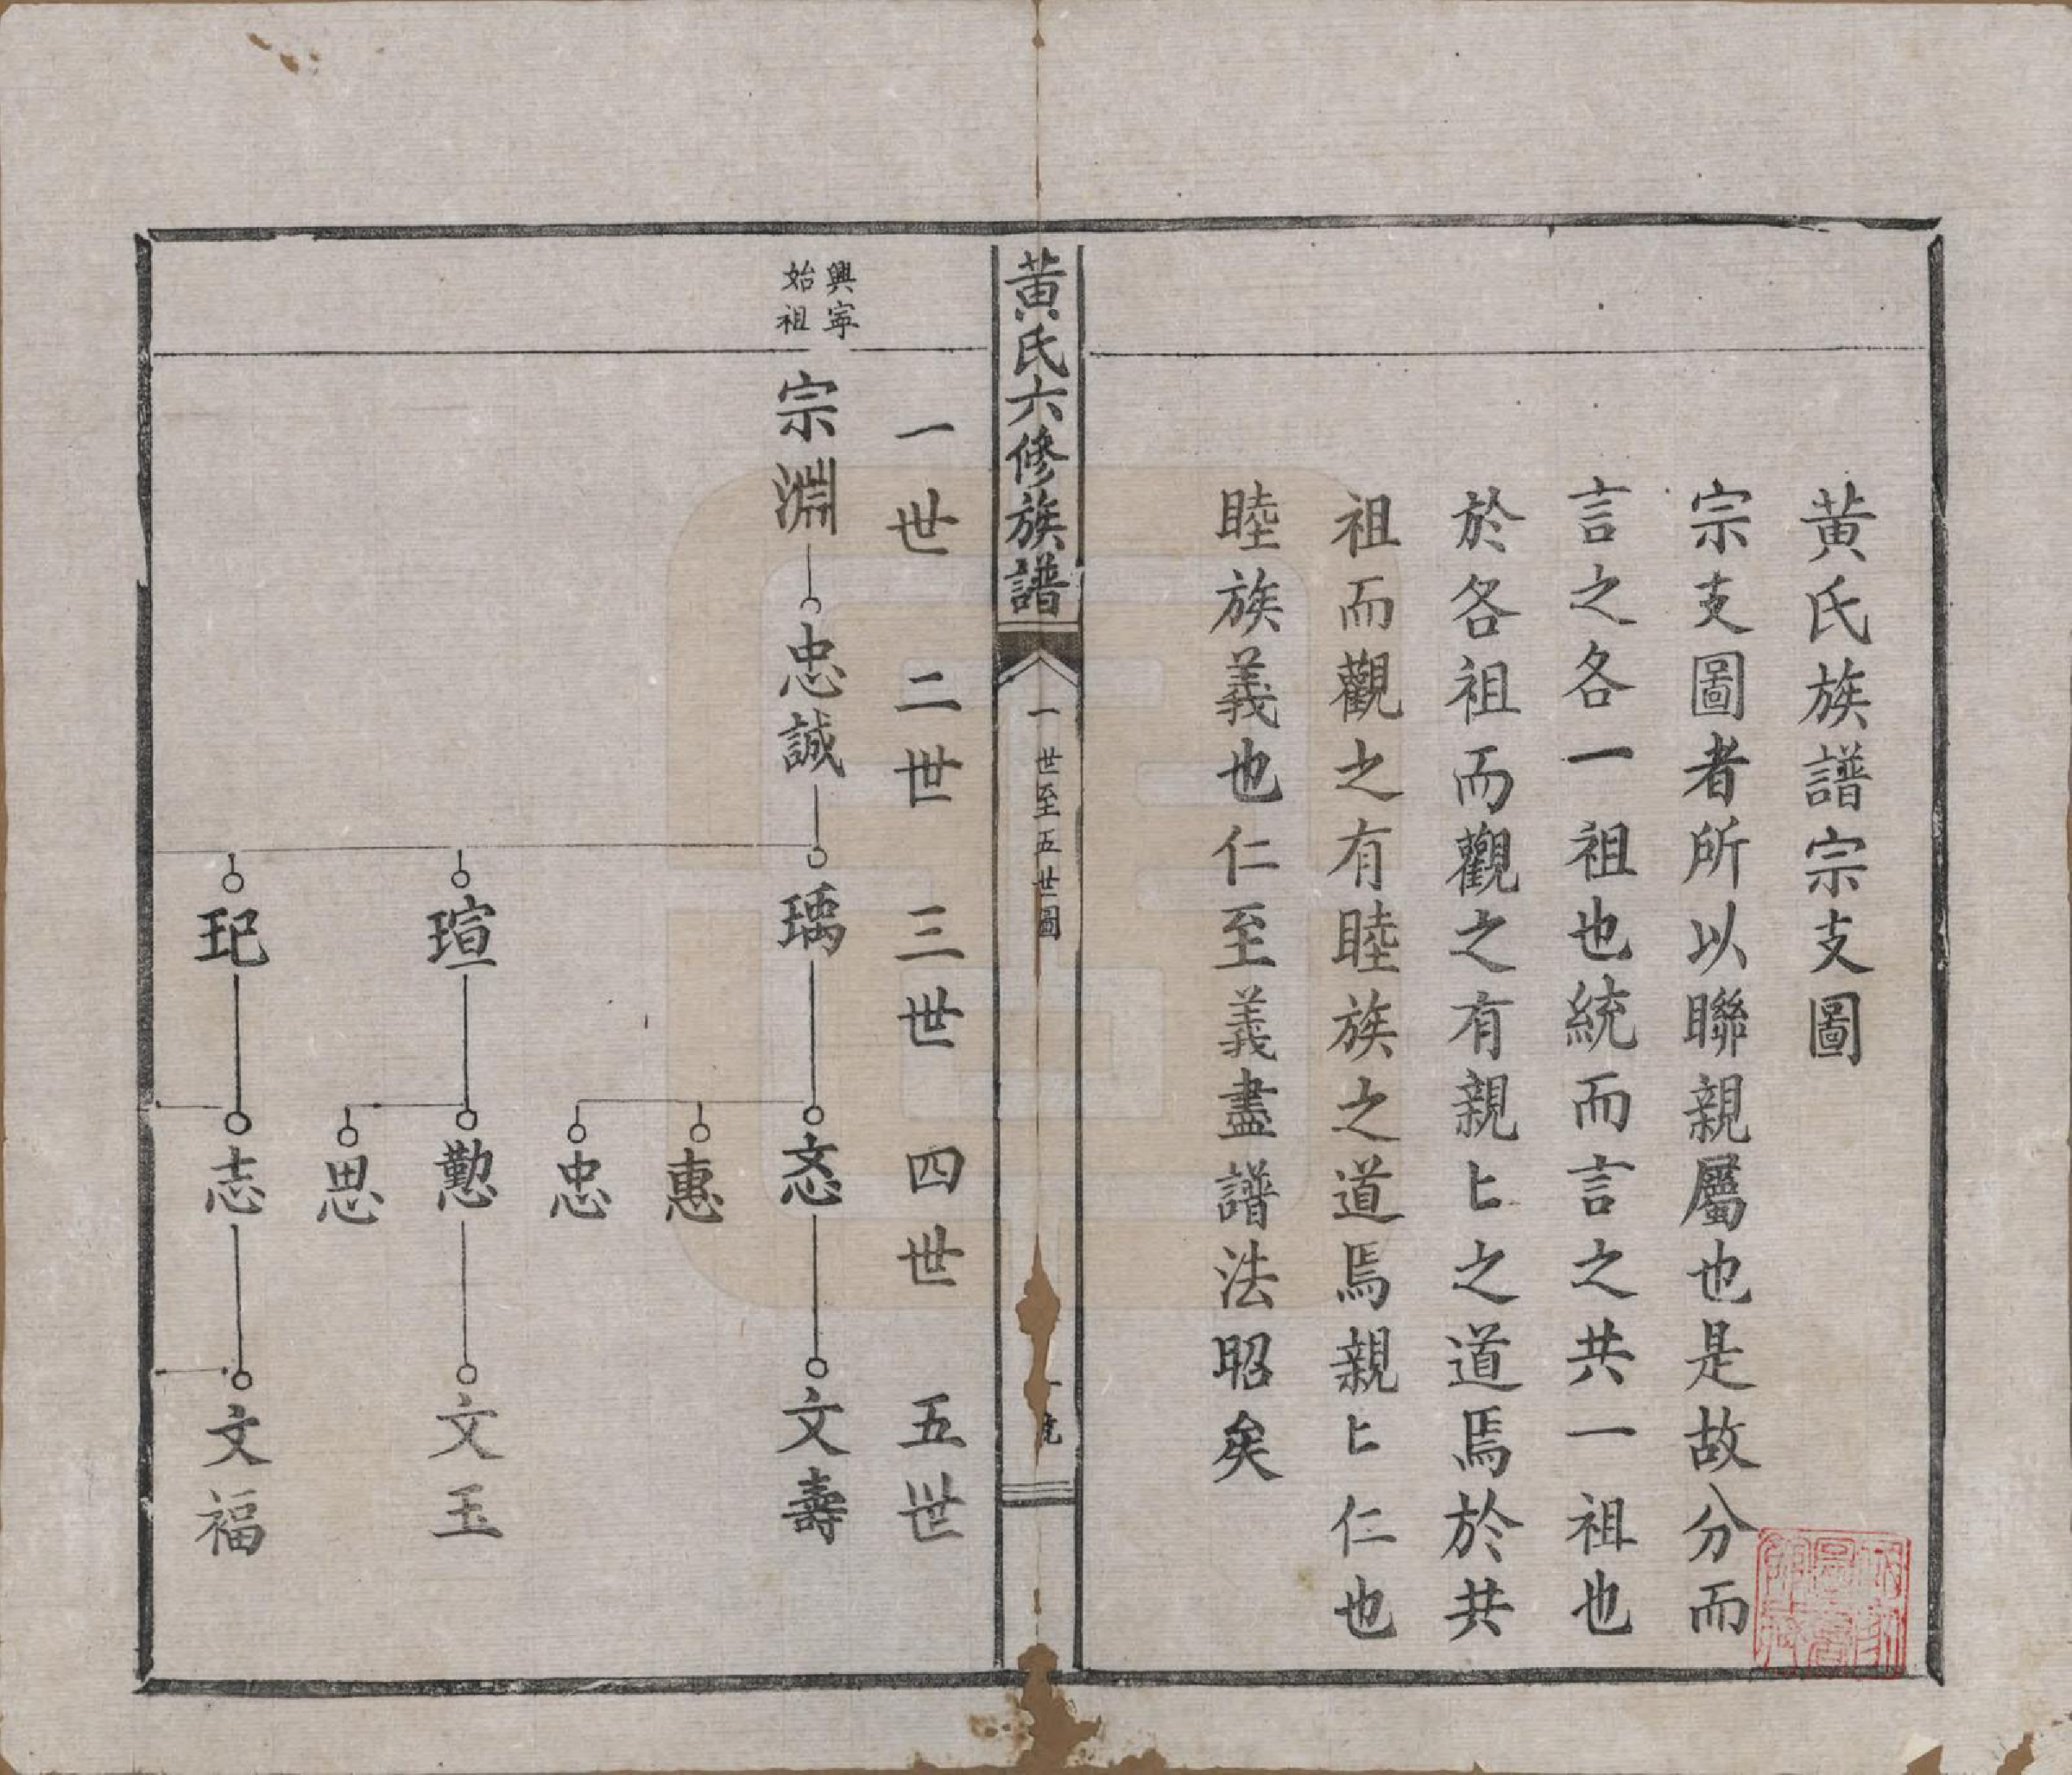 黄氏族譜宗支圖
宗支圖者所以聯親屬也是故分而
言之各一祖也統而言之共一祖也
於各祖而觀之有親匕之道焉於共
祖而觀之有睦族之道焉親匕仁也
睦族義也仁至義盡譜法昭矣
黄氏六修族譜
一世至五世圖
一世 二世 三世 四世 五世
興寧
始祖
宗淵 忠誠 瑀 忞 文壽
惠
忠
瑄 懃 文玉
思
玘 志 文福